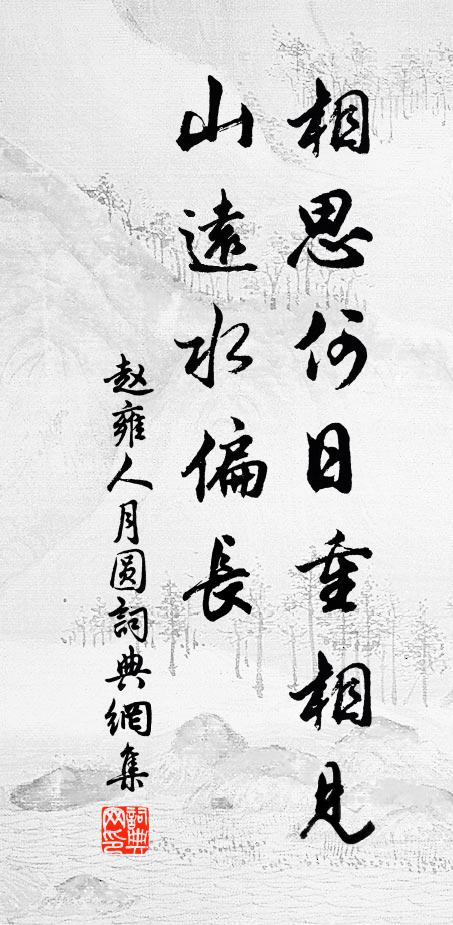 相思何日重相見
山遠水偏長
赵雍人月圆詞典網集
詞典網印